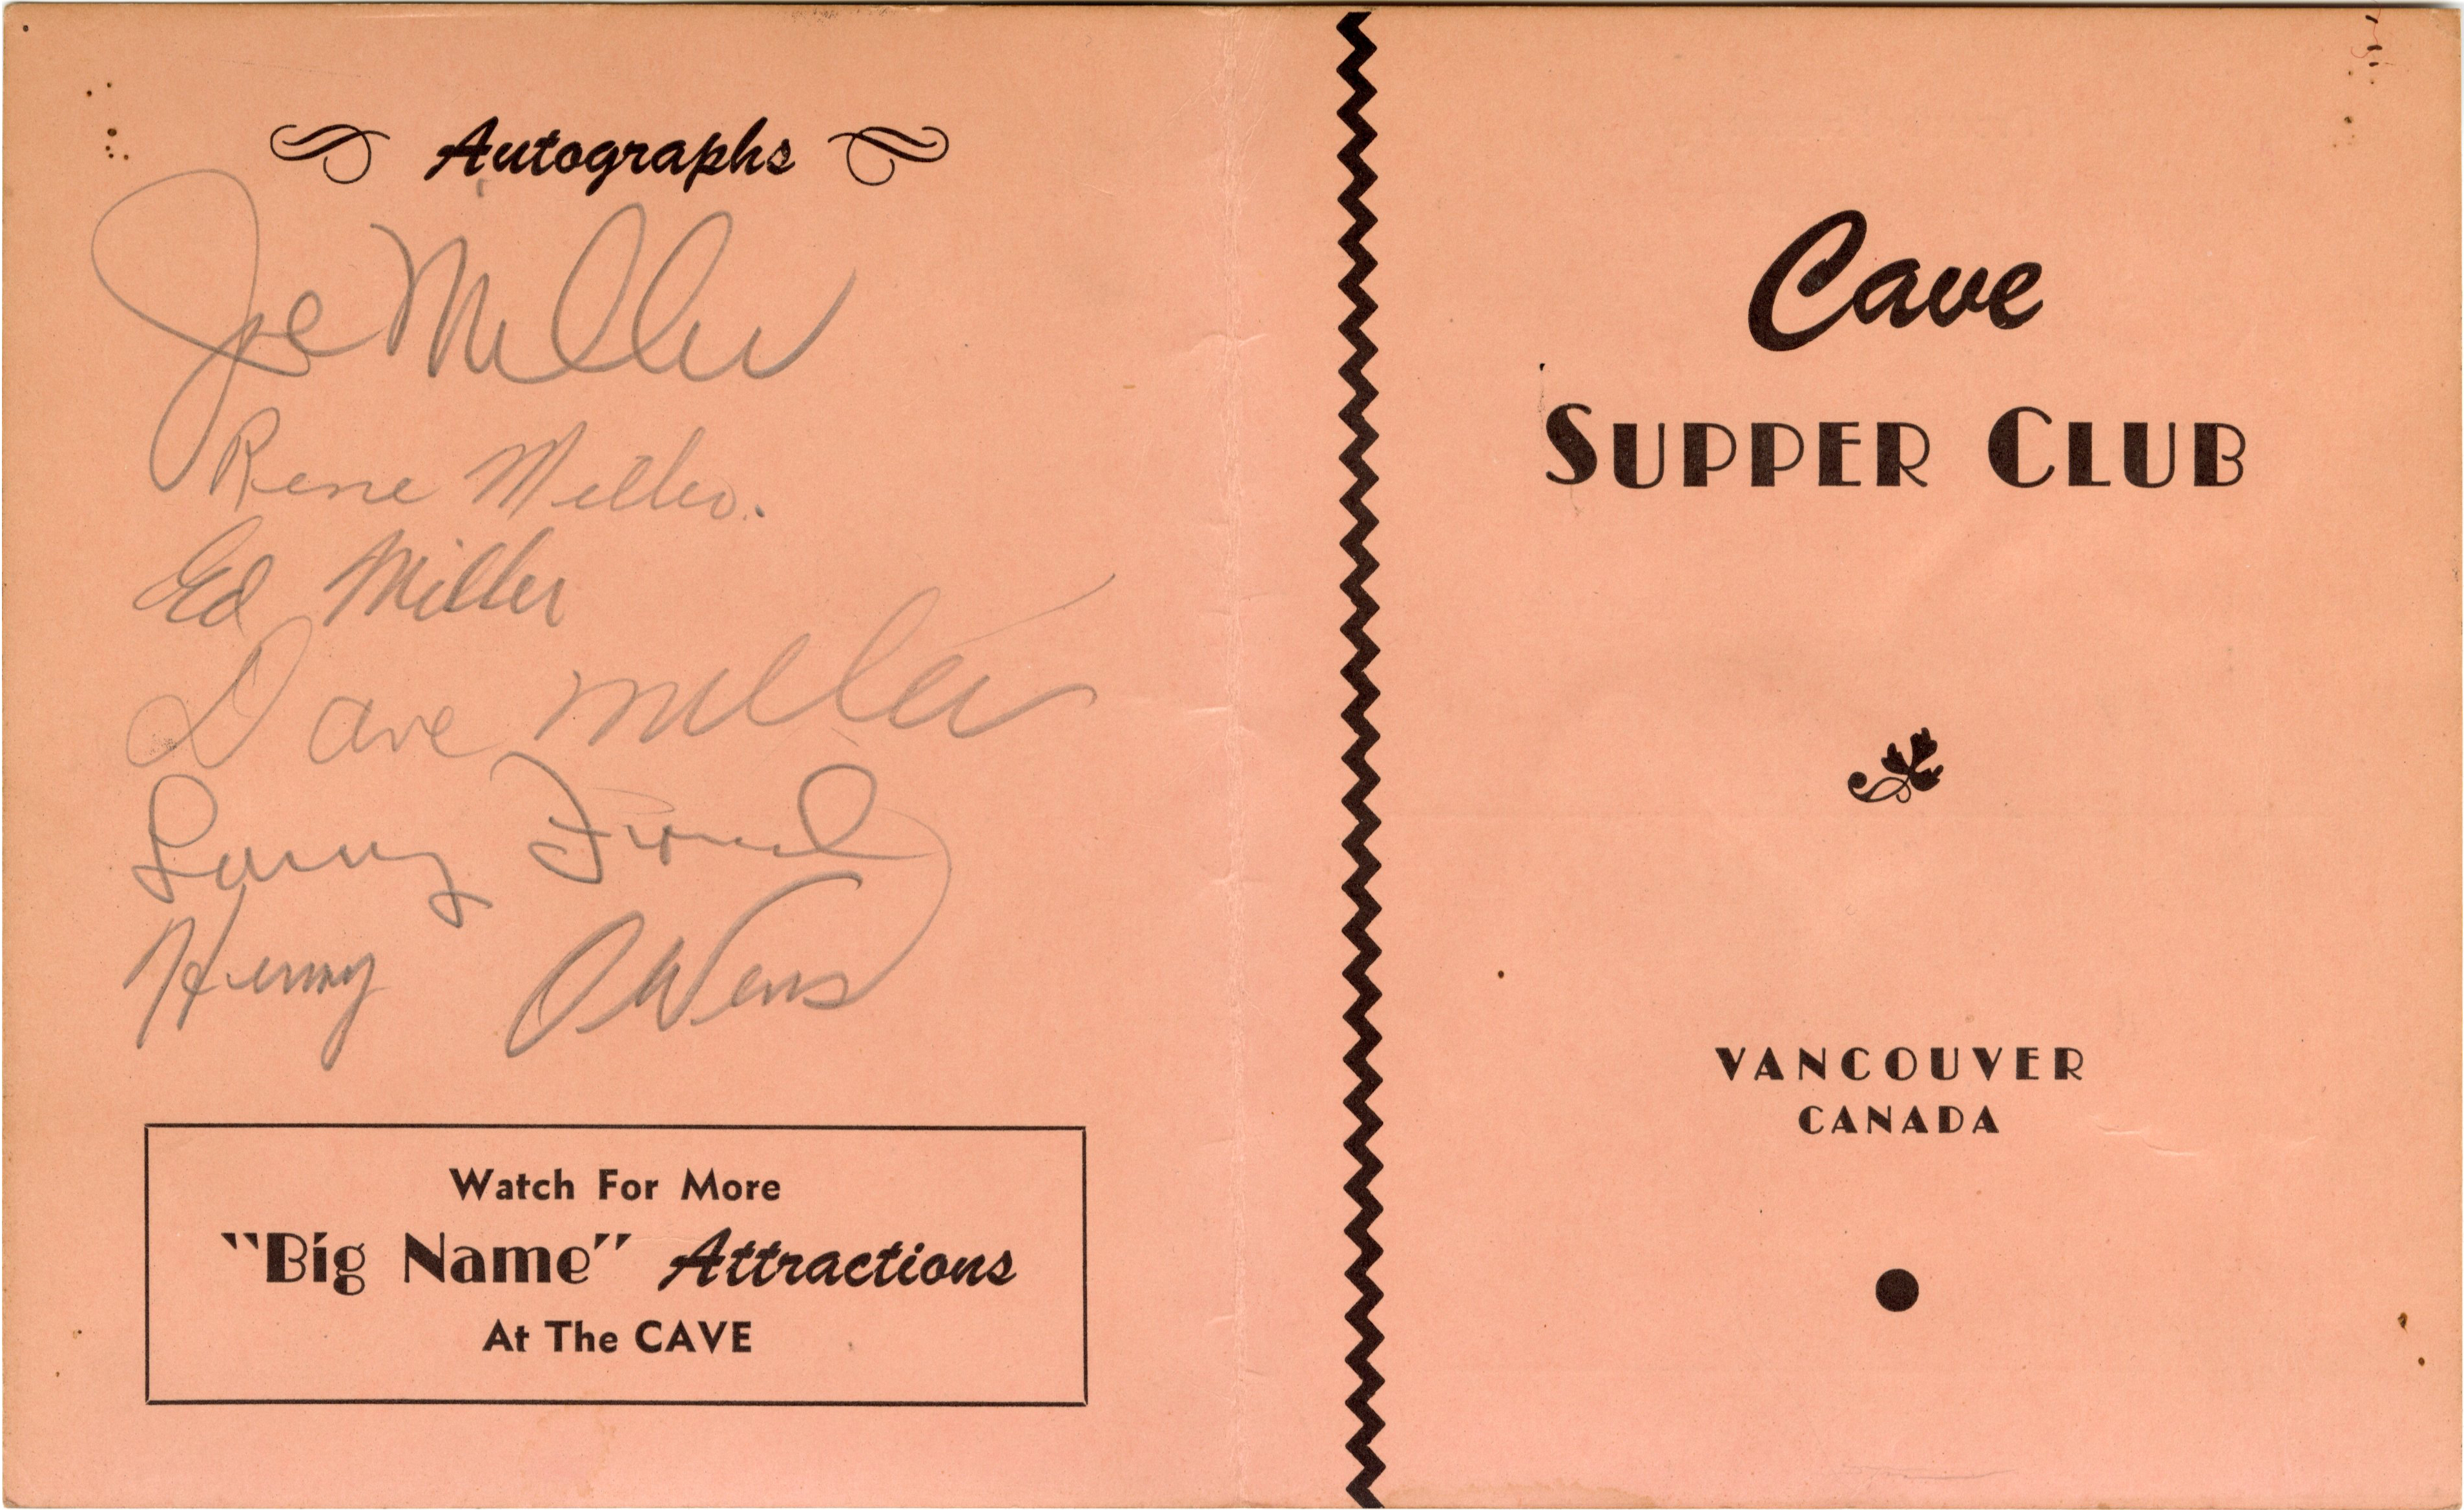 Autographs
Joe Miller
Rene Miller.
Ed Miller
Dave Miller
Larry
Henry Owens
Watch For More
"Big Name" Attractions
At The CAVE
Cave
SUPPER CLUB
VANCOUVER
CANADA